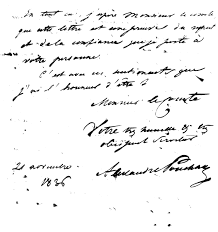 En tout cas j'espère Monsieur le Comte
que cette lettre est une preuve du respect
et de la confiance que je porte à
votre personne.
C'est avec ces sentiments que
j'ai l'honneur d'être
Monsieur le Comte
Votre très humble et très
obéissant Serviteur
21 novembre Alexandre Pouchkin
1836